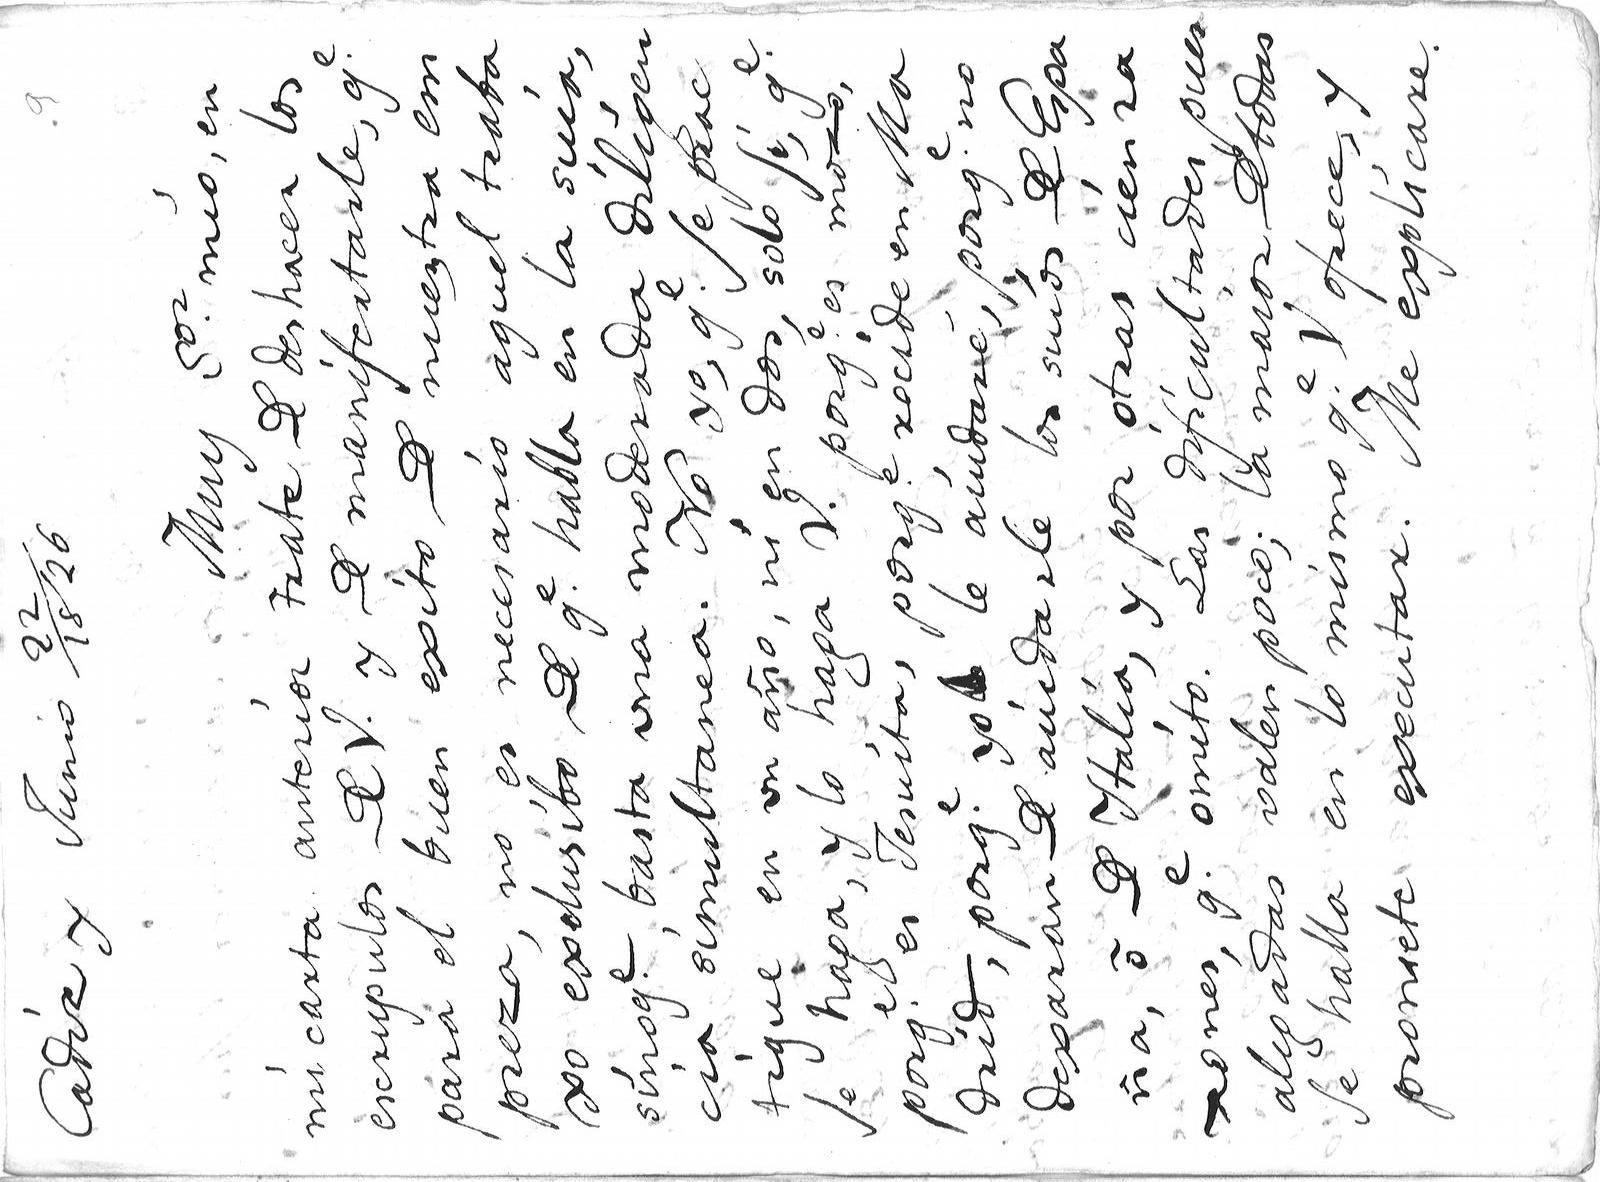 Cadiz y Junio 22/1826
Muy Sor. mio, en
mi carta anterior traté de deshacer los
escrupulos de V. y de manifestarle, qe.
para el buen exito de nuestra em
preza, no es necesario aquel traba
xo exclusibo de qe. habla en la suia,
sinoqe. basta una moderada diligen
cia simultanea. No yo, qe. se prac
tique en un año, ni en dos, solo sé, qe.
se haga, y lo haga V. porqe. es mozo,
porqe. es Jesuita, porqe. recide en Ma
drid, porqe. yo le aiudaré, porqe. no
dexaran de aiudarle los suios de Espa
ña, ó de Italia, y por otras cien ra
zones, qe. omito. Las dificultades pues
alegadas valen poco; la maior de todas
se halla en lo mismo qe. V. ofrece, y
promete executar. Me explicare.